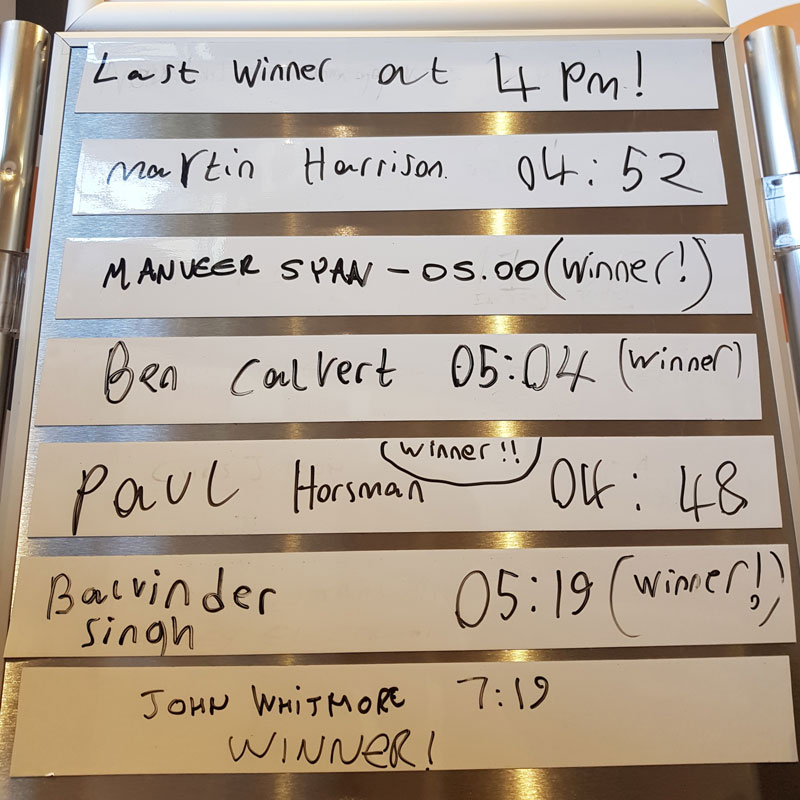 Last Winner at 4 pm!
Martin Harrison. 04:52
MANVEER SPAN - 05.00 (Winner!)
Ben Calvert 05:04 (Winner)
(Winner!!)
Paul Horsman 04:48
Balvinder 05:19 (Winner!)
Singh
JOHN WHITMORE 7:19
WINNER!